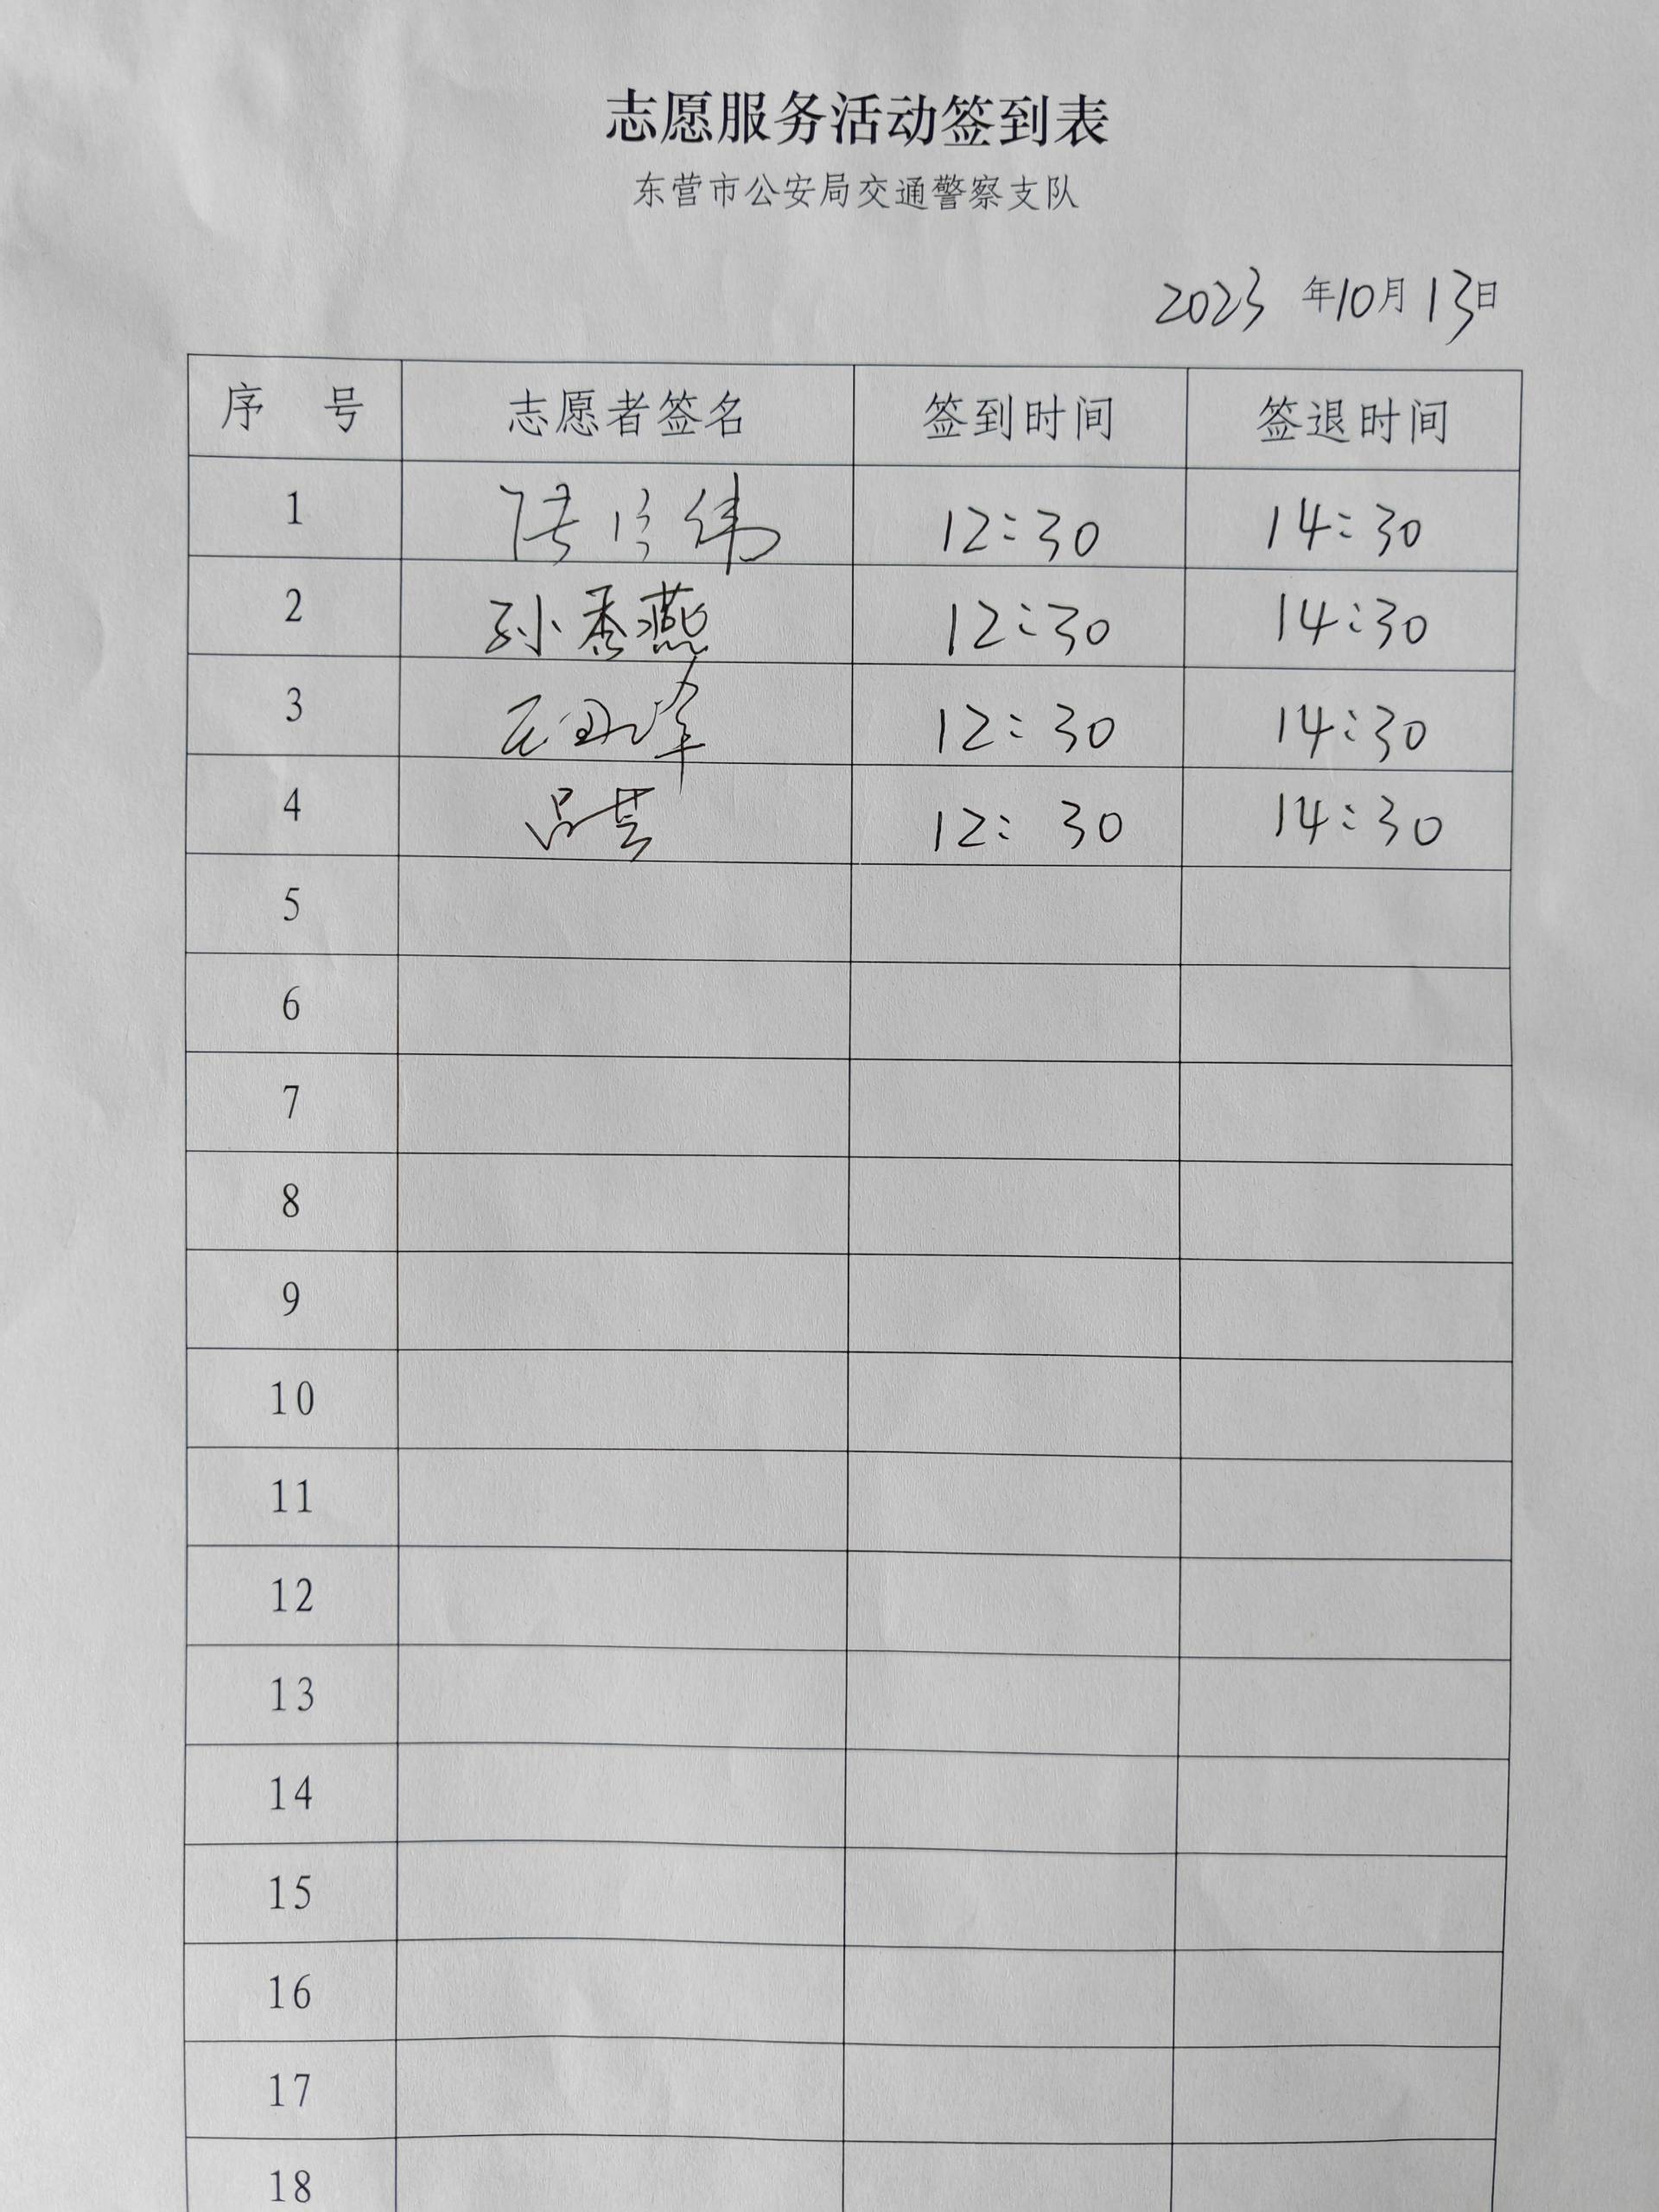 志愿服务活动签到表
东营市公安局交通警察支队
2023 年10月13日
序 号 志愿者签名 签到时间 签退时间
1 12:30 14:30
2 孙秀燕 12:30 14:30
3 12:30 14:30
4 吕芸 12:30 14:30
5
6
7
8
9
10
11
12
13
14
15
16
17
18